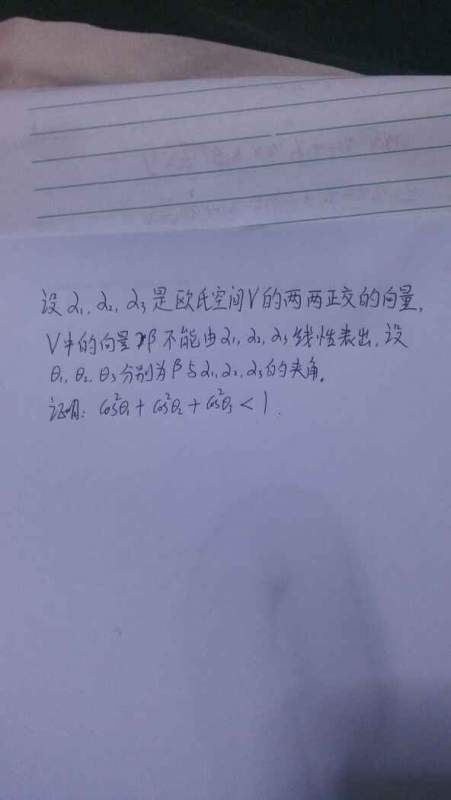 设α₁,α₂,α₃是欧氏空间V的两两正交的向量,
V中的向量β不能由α₁,α₂,α₃线性表出,设
θ₁,θ₂,θ₃分别为β与α₁,α₂,α₃的夹角。
证明:cos²θ₁+cos²θ₂+cos²θ₃<1.